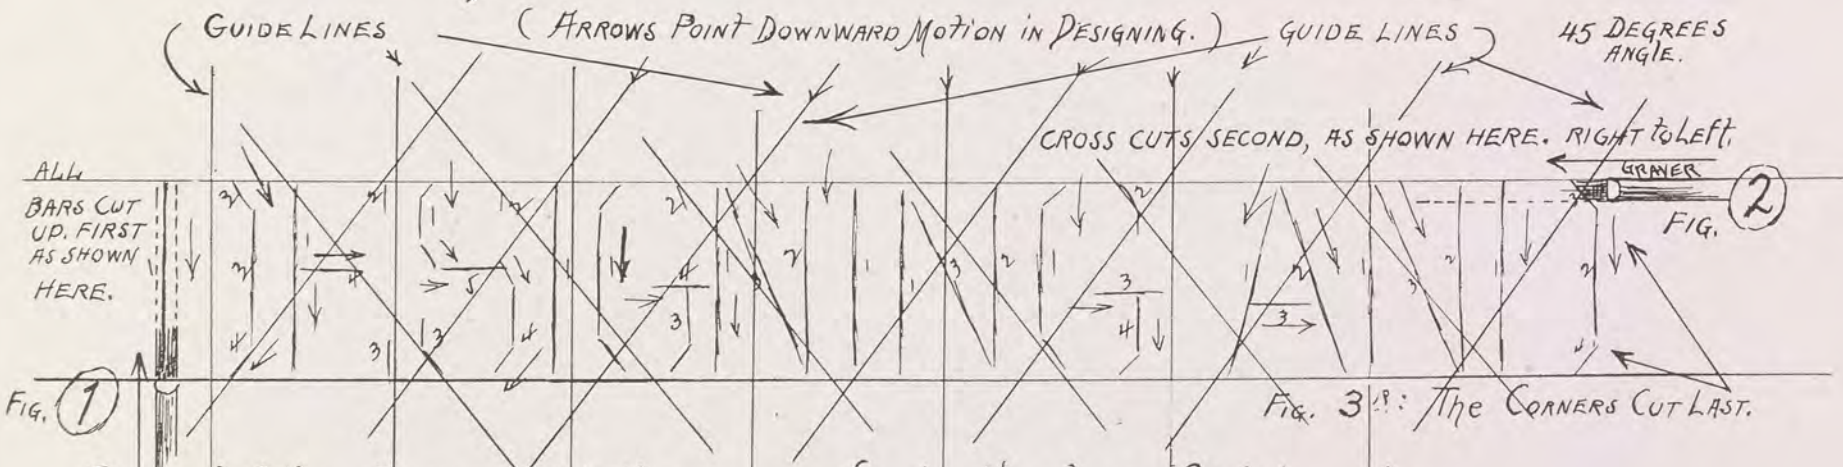 GUIDE LINES
( ARROWS POINT DOWNWARD MOTION IN DESIGNING. )
GUIDE LINES
45 DEGREES
ANGLE.
CROSS CUTS SECOND, AS SHOWN HERE. RIGHT to Left.
ALL
BARS CUT
UP. FIRST
AS SHOWN
HERE.
GRAVER
FIG. 2
FIG. 1
FIG. 3 : The CORNERS CUT LAST.